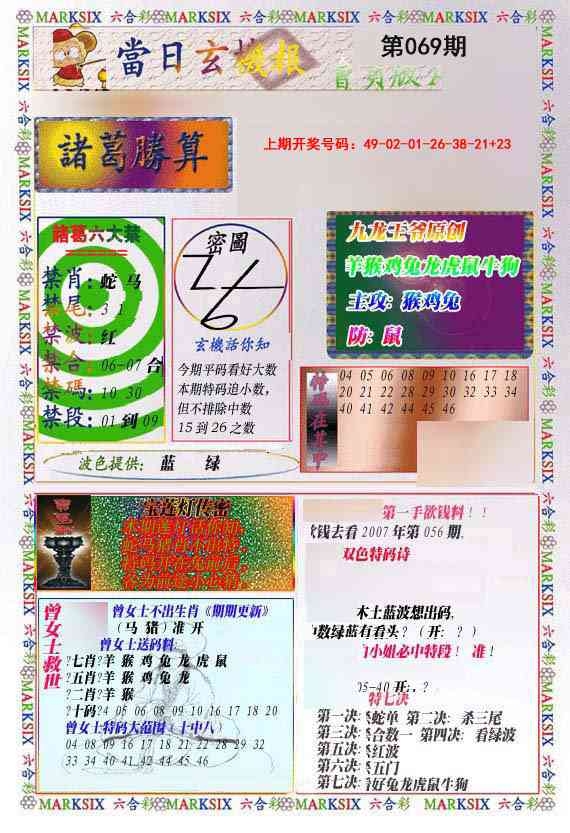 MARKSIX 六合彩MARKSIX 六合彩MARKSIX 六合彩MARKSIX 六合彩MARKSIX
當日玄機报
第069期
諸葛勝算
上期开奖号码：49-02-01-26-38-21+23
諸葛六大禁
禁肖：蛇 马
禁尾：3 1
禁波：红
禁合：06-07 合
禁碼：10 30
禁段：01 到 09
密圖
玄機話你知
今期平码看好大数
本期特码追小数，
但不排除中数
15 到 26 之数
九龙王爷原创
羊猴鸡兔龙虎鼠牛狗
主攻：猴鸡兔
防：鼠
特码在其中
04 05 06 08 09 10 16 17 18
20 21 22 28 29 30 32 33 34
40 41 42 44 45 46
波色提供： 蓝 绿
宝莲灯传密
曾女士救世
曾女士不出生肖《期期更新》
（马 猪）准 开
曾女士送码料：
?七肖?羊 猴 鸡 兔 龙 虎 鼠
?五肖?羊 猴 鸡 兔 龙
?二肖?羊 猴
?十码?4 05 06 08 09 10 16 17 18 20
曾女士特码大范围（十中八）
04 08 09 16 17 18 20 21 22 28 29 32
33 34 40 41 42 44 45 46
第一手欲钱料！！
欲钱去看 2007 年第 056 期，
双色特码诗
木土蓝波想出码，
数绿蓝有看头？（开：？）
小姐必中特段！ 准！
05-40 开：。？
特七决
第一决：蛇单 第二决：杀三尾
第三决：合数一 第四决：看绿波
第五决：红波
第六决：五门
第七决：好兔龙虎鼠牛狗
MARKSIX 六合彩MARKSIX 六合彩MARKSIX 六合彩MARKSIX 六合彩MARKSIX